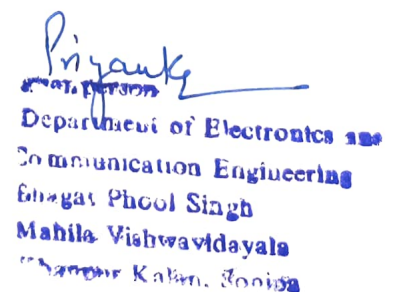 Priyanka
Chairperson
Department of Electronics and
Communication Engineering
Bhagat Phool Singh
Mahila Vishwavidayala
Khanpur Kalan, Sonipa